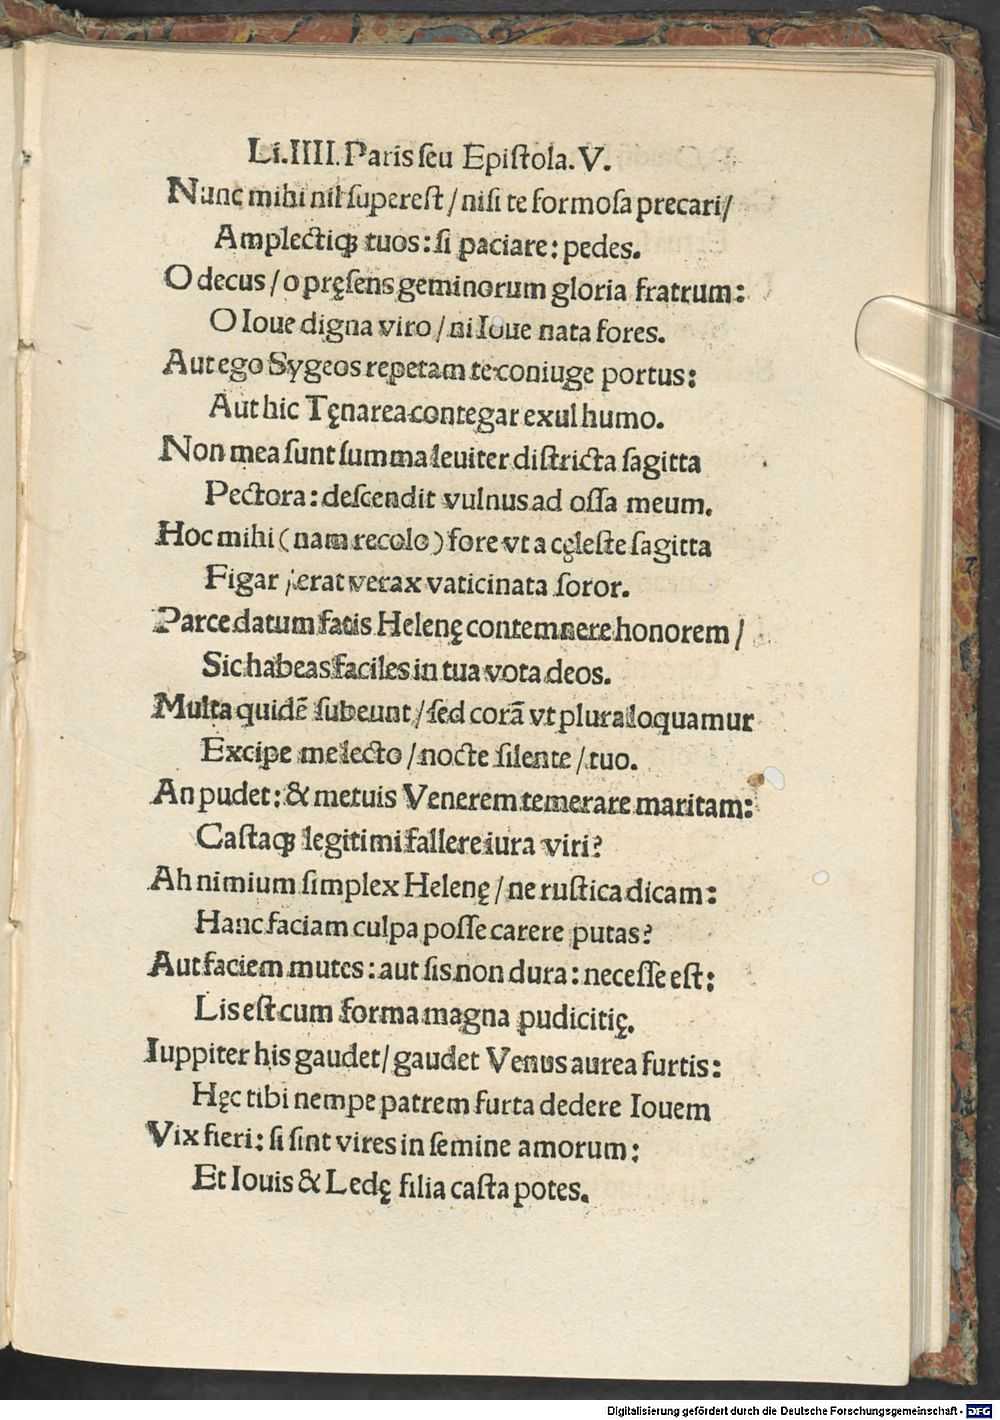 Li.IIII.Paris seu Epiſtola.V.
Nunc mihi nil ſupereſt / niſi te formoſa precari /
Amplectiqꝫ tuos : ſi paciare : pedes.
O decus / o pręſens geminorum gloria fratrum :
O Ioue digna viro / ni Ioue nata fores.
Aut ego Sygeos repetam te coniuge portus :
Aut hic Tęnarea contegar exul humo.
Non mea ſunt ſumma leuiter diſtricta ſagitta
Pectora : deſcendit vulnus ad oſſa meum.
Hoc mihi ( nam recolo ) fore vt a cęleſte ſagitta
Figar / erat verax vaticinata ſoror.
Parce datum fatis Helenę contemnere honorem /
Sic habeas faciles in tua vota deos.
Multa quidē ſubeunt / ſed corā vt plura loquamur
Excipe me lecto / nocte ſilente / tuo.
An pudet : & metuis Venerem temerare maritam :
Caſtaqꝫ legitimi fallere iura viri?
Ah nimium ſimplex Helenę / ne ruſtica dicam :
Hanc faciam culpa poſſe carere putas?
Aut faciem mutes : aut ſis non dura : neceſſe eſt :
Lis eſt cum forma magna pudicitię.
Iuppiter his gaudet / gaudet Venus aurea furtis :
Hęc tibi nempe patrem furta dedere Iouem
Vix fieri : ſi ſint vires in ſemine amorum :
Et Iouis & Ledę filia caſta potes.
Digitalisierung gefördert durch die Deutsche Forschungsgemeinschaft - DFG